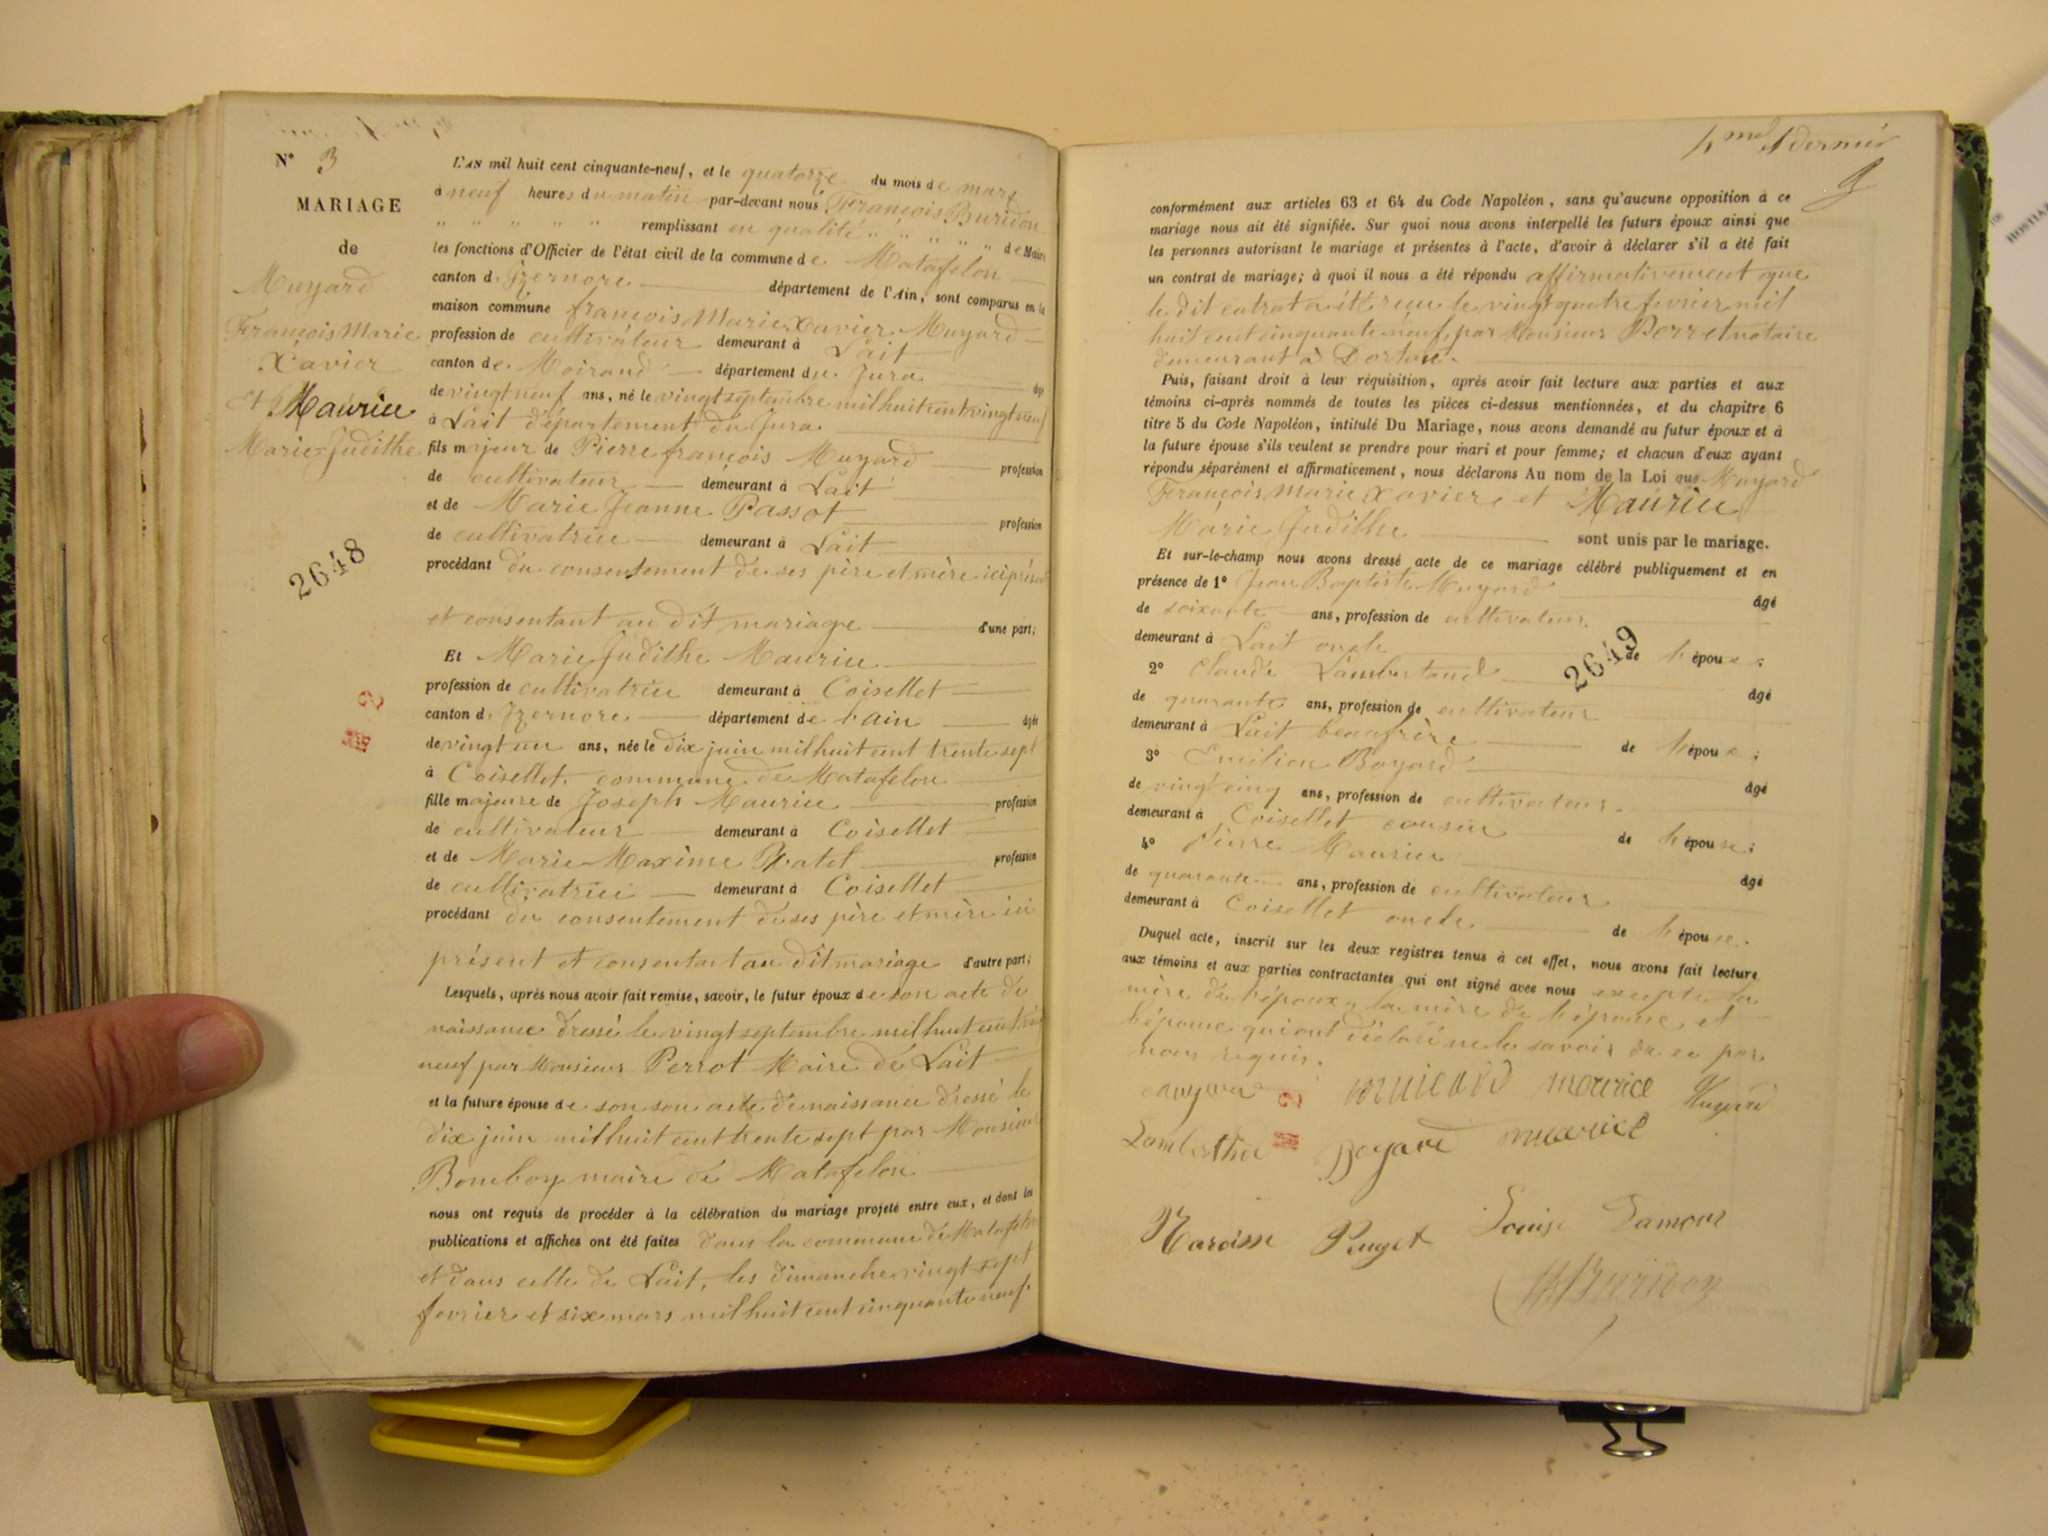 N° 3
MARIAGE
de
Muyard
François Marie
Xavier
et Maurice
Marie Judithe
2648
L'AN mil huit cent cinquante-neuf, et le quatorze du mois de mars
à neuf heures du matin par-devant nous François Buridon
" " " " " remplissant en qualité " " " " " de Maire
les fonctions d'Officier de l'état civil de la commune de Matafelon
canton d'Izernore département de l'Ain, sont comparus en la
maison commune françois Marie Xavier Muyard
profession de cultivateur demeurant à Lait
canton de Moirand département du Jura âgé
de vingt neuf ans, né le vingt septembre mil huit cent vingt neuf
à Lait département du Jura
fils majeur de Pierre françois Muyard profession
de cultivateur demeurant à Lait
et de Marie Jeanne Passot profession
de cultivatrice demeurant à Lait
procédant du consentement de ses père et mère ici présent
et consentant au dit mariage d'une part;
Et Marie Judithe Maurice
profession de cultivatrice demeurant à Coisellet
canton d'Izernore département de l'ain âgée
de vingt un ans, née le dix juin mil huit cent trente sept
à Coisellet commune de Matafelon
fille majeure de Joseph Maurice profession
de cultivateur demeurant à Coisellet
et de Marie Maxime profession
de cultivatrice demeurant à Coisellet
procédant du consentement de ses père et mère ici
présent et consentant au dit mariage d'autre part;
Lesquels, après nous avoir fait remise, savoir, le futur époux de son acte de
naissance dressé le vingt septembre mil huit cent
neuf par Monsieur Perrot Maire de Lait
et la future épouse de son son acte de naissance dressé le
dix juin mil huit cent trente sept par Monsieur
Bomboy maire de Matafelon
nous ont requis de procéder à la célébration du mariage projeté entre eux, et dont les
publications et affiches ont été faites dans la commune de Matafelon
et dans celle de Lait, les dimanche vingt sept
fevrier et six mars mil huit cent cinquante neuf.
dernier
conformément aux articles 63 et 64 du Code Napoléon, sans qu'aucune opposition à ce
mariage nous ait été signifiée. Sur quoi nous avons interpellé les futurs époux ainsi que
les personnes autorisant le mariage et présentes à l'acte, d'avoir à déclarer s'il a été fait
un contrat de mariage; à quoi il nous a été répondu affirmativement que
le dit contrat a été reçu le vingt quatre fevrier mil
huit cent cinquante neuf, par Monsieur Perret notaire
demeurant à Dortan.
Puis, faisant droit à leur réquisition, après avoir fait lecture aux parties et aux
témoins ci-après nommés de toutes les pièces ci-dessus mentionnées, et du chapitre 6
titre 5 du Code Napoléon, intitulé Du Mariage, nous avons demandé au futur époux et à
la future épouse s'ils veulent se prendre pour mari et pour femme; et chacun d'eux ayant
répondu séparément et affirmativement, nous déclarons Au nom de la Loi que Muyard
François Marie Xavier, et Maurice
Marie Judithe sont unis par le mariage.
Et sur-le-champ nous avons dressé acte de ce mariage célébré publiquement et en
présence de 1° Jean Baptiste Muyard âgé
de soixante ans, profession de cultivateur
demeurant à Lait oncle de l'époux;
2649
2° Claude Lambertand âgé
de quarante ans, profession de cultivateur
demeurant à Lait beaufrère de l'époux;
3° Emilien Boyard âgé
de vingt cinq ans, profession de cultivateur
demeurant à Coisellet cousin de l'épouse;
4° Pierre Maurice âgé
de quarante ans, profession de cultivateur
demeurant à Coisellet oncle de l'épouse.
Duquel acte, inscrit sur les deux registres tenus à cet effet, nous avons fait lecture
aux témoins et aux parties contractantes qui ont signé avec nous excepté la
mère de l'époux, la mère de l'épouse et
l'épouse qui ont déclaré ne le savoir de ce par
nous requis.
muiard maurice Muyard
Boyard maurice
Narcisse Puget Louise Lamour
Buridon